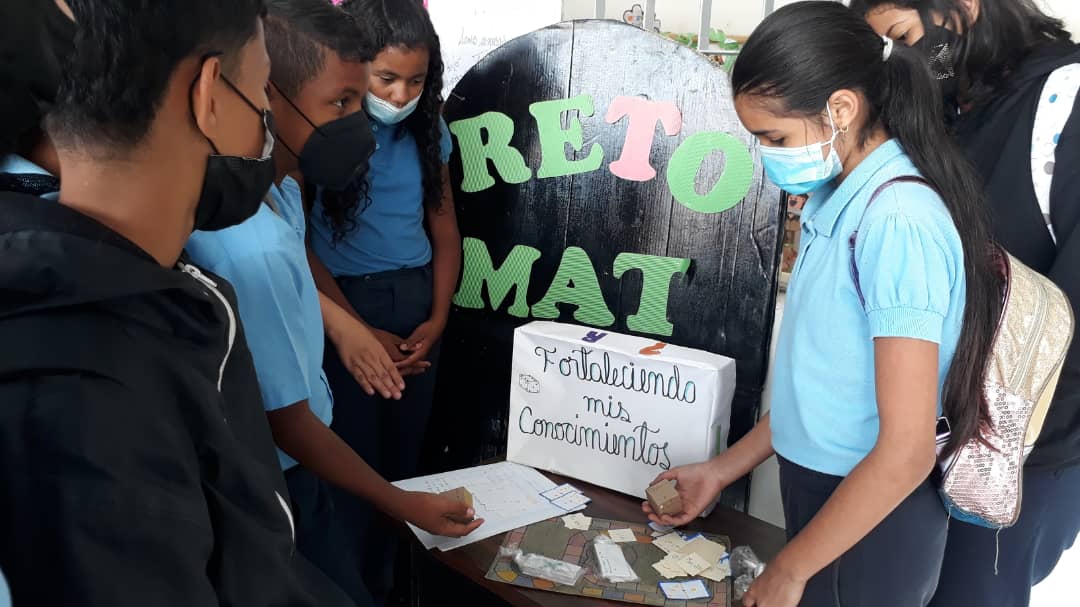 RETO
MAT
Fortaleciendo
mis
Conocimientos